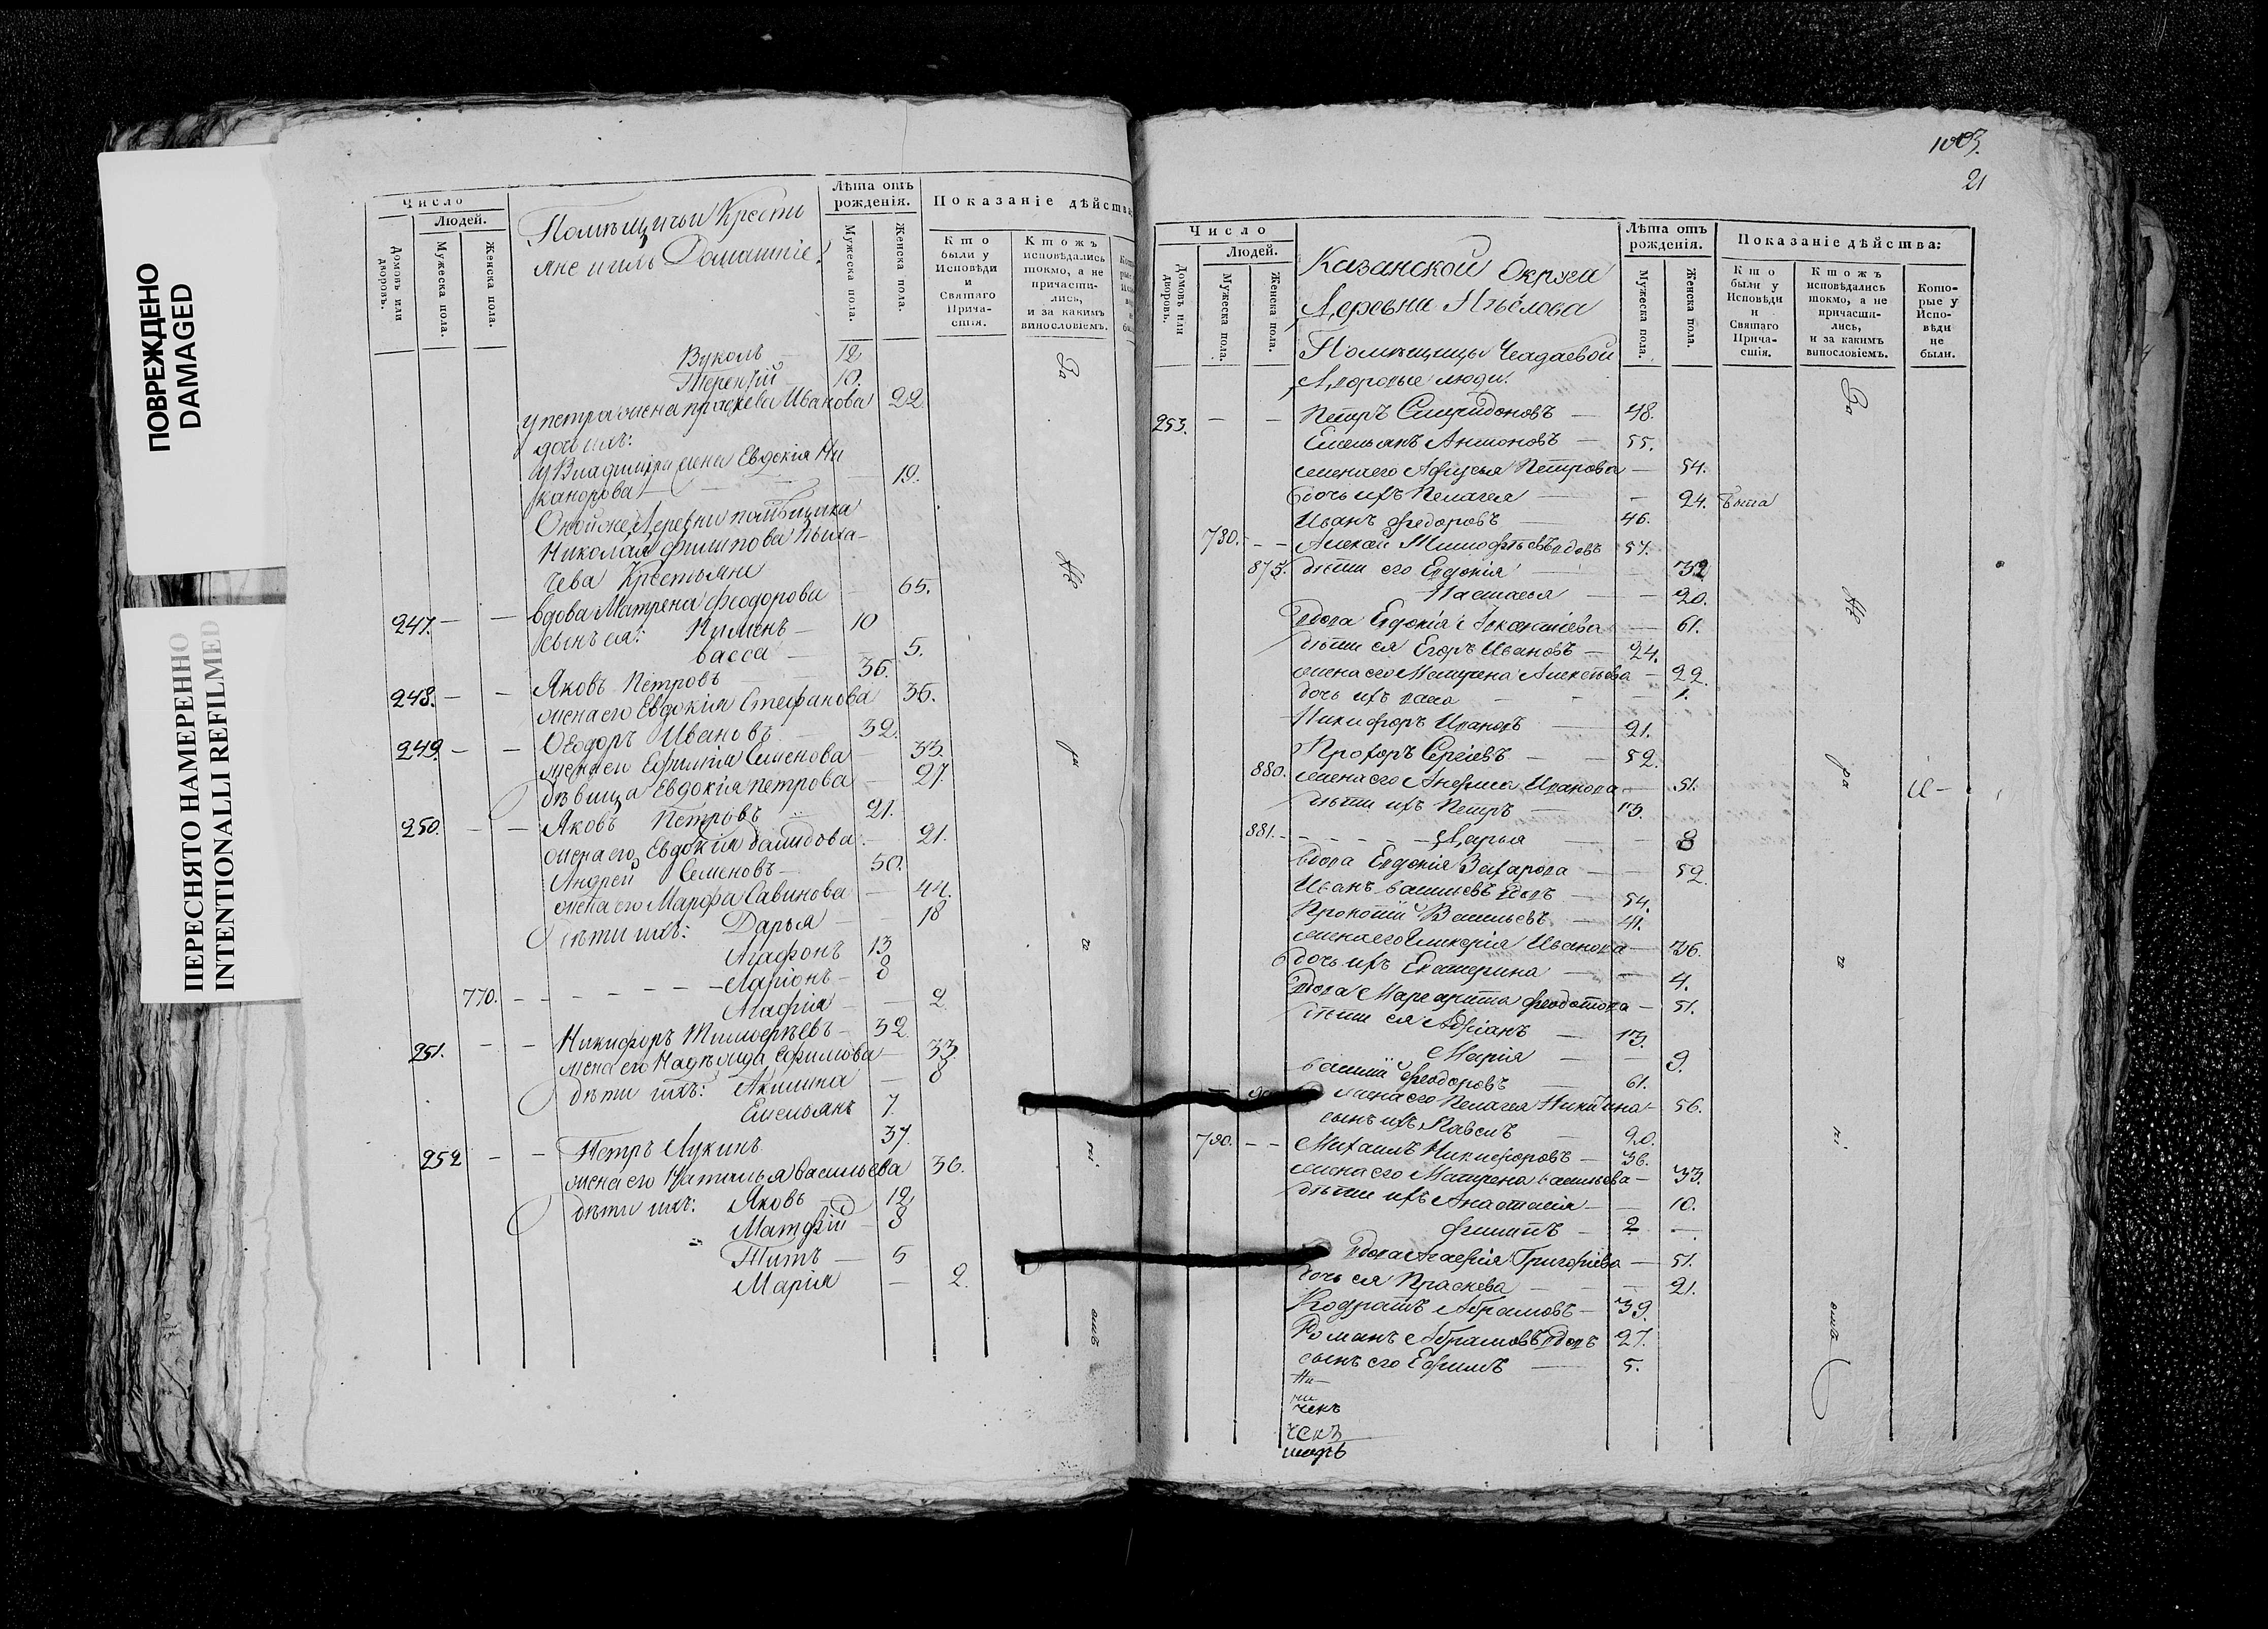 ПОВРЕЖДЕНО
DAMAGED
ПЕРЕСНЯТО НАМЕРЕННО
INTENTIONALLI REFILMED
Число
Людей.
Домовъ или дворовъ.
Мужеска пола.
Женска пола.
Помѣщичьи Крестьяне и ихъ Домашніе.
Лѣта отъ рожденія.
Мужеска пола.
Женска пола.
Показаніе дѣйства:
Кто были у Исповѣди и Святаго Причастія.
Ктожъ исповѣдались токмо, а не причастились, и за какимъ винословіемъ.
Вуколъ 12
Терентій 10.
у петра жена праскева Иванова 22
дочь ихъ:
у Владиміра жена Евдокія Ни
канорова 19.
Оной же Деревни помѣщика
Николая филипова
чева Крестьяне
247. вдова Матрена феодорова 65.
сынъ ея: Пименъ 10
васса 5.
248. Яковъ Петровъ 36.
жена его Евдокія Стефанова 36.
249. Ѳеодоръ Ивановъ 32.
жена его Ефимія Семенова 33.
дѣвица Евдокія петрова 27.
250. Яковъ Петровъ 21.
жена его Евдокія давидова 21.
Андрей Семеновъ 50.
жена его Марфа Савинова 44.
дѣти ихъ: Дарья 18
Агафонъ 13
770. Ларіонъ 8
Агафія 2
251. Никифоръ Тимофѣевъ 32
жена его Надѣжда Ефимова 33.
дѣти ихъ: Акилина 8
Емельянъ 7.
252 Петръ Лукинъ 37.
жена его Наталья васильева 36.
дѣти ихъ: Яковъ 12
Матфій 8
Титъ 5
Марія 2.
1003.
21
Число
Людей.
Домовъ или дворовъ.
Мужеска пола.
Женска пола.
Казанской Округи
Деревна
Помѣщицы Чеадаевой
Дворовые люди:
Лѣта отъ рожденія.
Мужеска пола.
Женска пола.
Показаніе дѣйства:
Кто были у Исповѣди и Святаго Причастія.
Ктожъ исповѣдались токмо, а не причастились, и за какимъ винословіемъ.
Которые у Исповѣди не были.
253. Петръ Спиридоновъ 48.
Емельянъ Антоновъ 55.
жена его Афимья Петрова 54.
дочь ихъ Пелагея 24. была
Иванъ федоровъ 46.
780. Алексей Тимофѣевъ вдовъ 57.
875. дѣти его Евдокія 32
Настасья 20.
вдова Евдокія 61.
дѣти ея Егоръ Ивановъ 24.
жена его Матрена Алексѣева 22.
дочь ихъ васса 1.
Никифоръ Ивановъ 21.
Прохоръ Сергіевъ 52.
880. жена его Анфиса Иванова 51.
дѣти ихъ Петръ 13.
881. Дарья 8
вдова Евдокія Захарова 52.
Иванъ васильевъ вдовъ 54.
Прокопій Васильевъ 41.
жена его Гликерія Иванова 36.
дочь ихъ Екатерина 4.
вдова Маргарита феодотова 51.
дѣти ея Адріанъ 13.
Марія 9.
василій феодоровъ 61.
жена его Пелагея Никитина 56.
сынъ ихъ Павелъ 20.
790. Михаилъ Никифоровъ 36.
жена его Матрена васильева 33.
дѣти ихъ Анастасія 10.
филипъ 2
вдова Агафія Григорьева 51.
дочь ея Праскева 21.
Кодратъ Абрамовъ 39.
Романъ Абрамовъ вдовъ 27.
сынъ его Ефимъ 5.